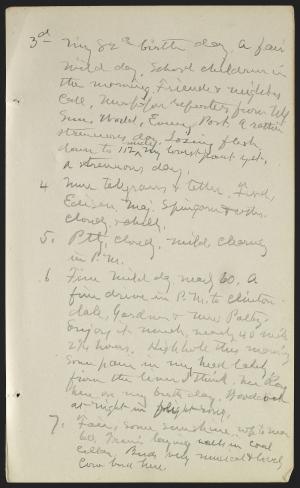 3d My 82d birth day. A fair
mild day. School children in
the morning. Friends & neighbors
call, Newspaper reporters from
Sun, World, Evening Post. A rather
strenuous day. Losing flesh,
down to 112, my lowest point yet.
a strenuous day.
4 More telegrams & letters. Fords,
Edison, Maj. Spingarn & others.
Cloudy & chilly.
5. Ptly, cloudy, mild clearing
in P.M.
6 Fine mild day near 60. A
fine drive in P.M. to Clinton-
dale, Gardner & New Paltz.
Enjoy it much, nearly 40 miles
2 1/2 hours. Highhole this morning
Some pain in my head lately,
from the liver I think.
here on my birth day. Woodcock
at night in flight song.
7. Fair, some sunshine,
60. laying walls in coal
cellar. Birds very musical
Cow bird here.